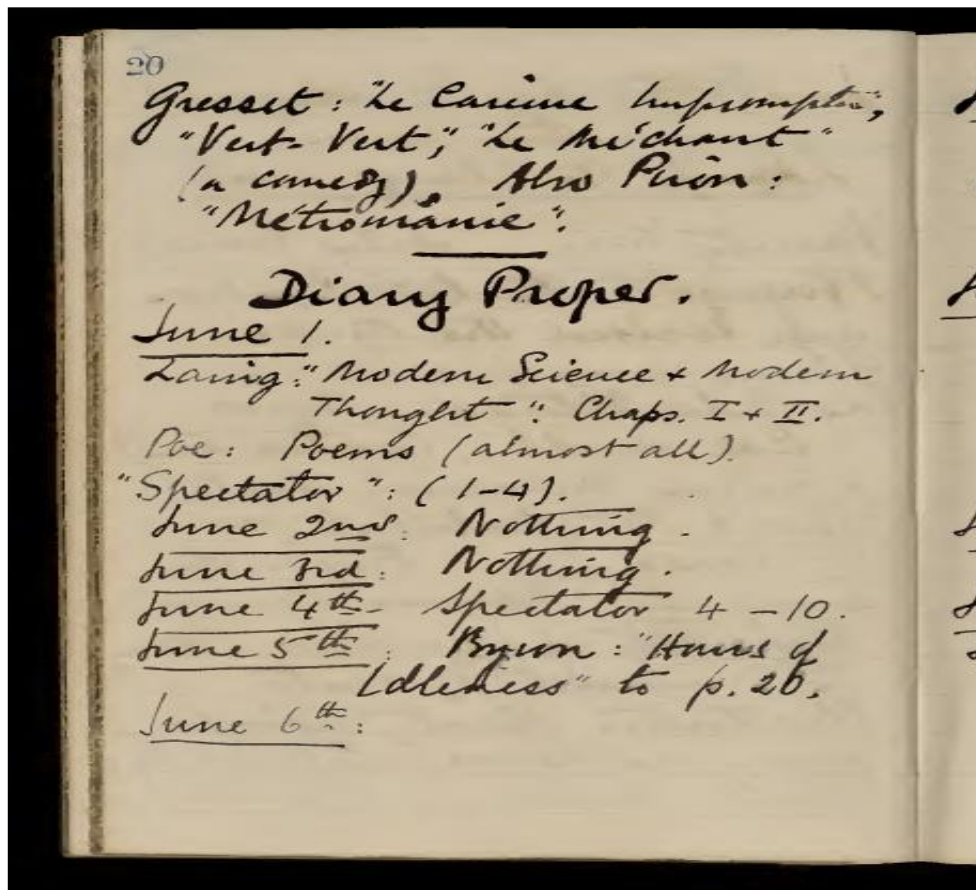 20
Gresset: "Le Carême Impromptu",
"Vert-Vert"; "Le Méchant"
(a comedy). Also Piron:
"Métromanie".
Diary Proper.
June 1.
Laing: "Modern Science + Modern
Thought". Chaps. I + II.
Poe: Poems (almost all).
"Spectator": (1-4).
June 2nd. Nothing.
June 3rd. Nothing.
June 4th. Spectator 4-10.
June 5th. Byron: "Hours of
Idleness" to p. 20.
June 6th: